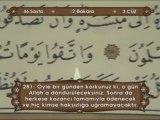 46.Sayfa 2.Bakara 3.CÜZ
وَاتَّقُوا يَوْمًا
281- Öyle bir günden korkunuz ki, o gün
Allah'a döndürüleceksiniz. Sonra da
herkese kazancı tamamıyla ödenecek
ve hiç kimse haksızlığa uğramayacaktır.